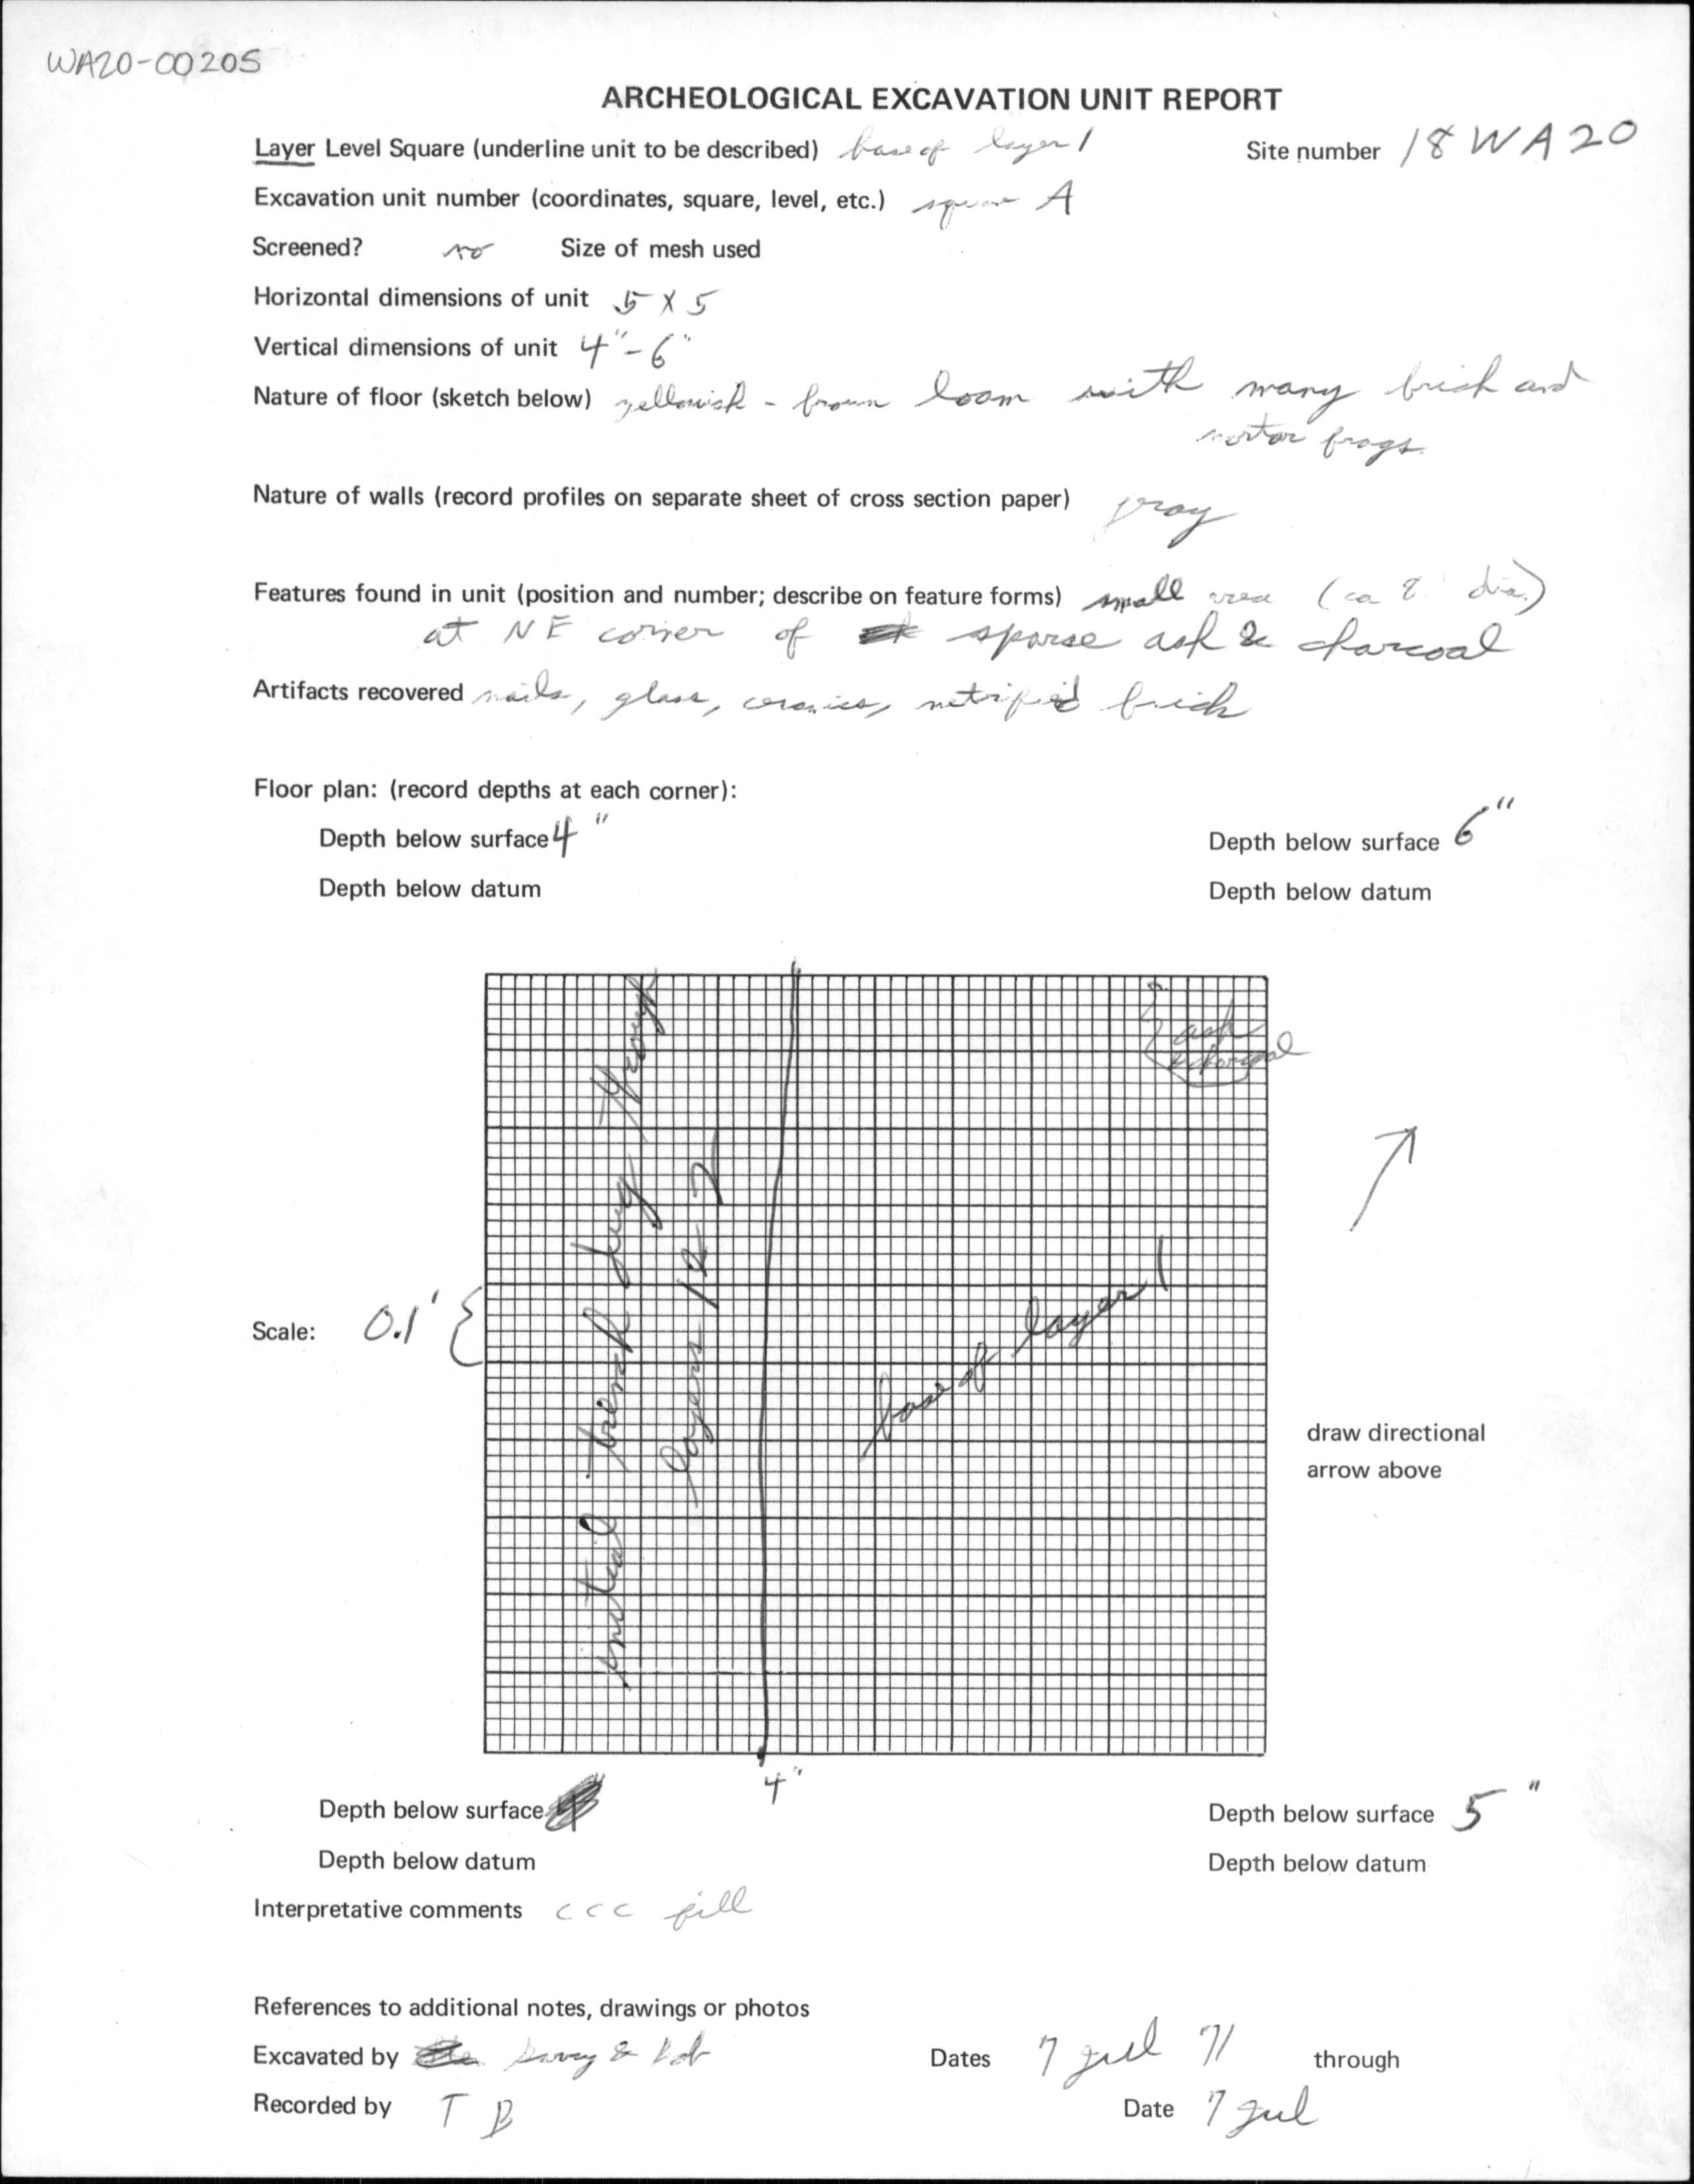 WA20-00205
ARCHEOLOGICAL EXCAVATION UNIT REPORT
Layer Level Square (underline unit to be described) base of layer 1
Site number 18 WA 20
Excavation unit number (coordinates, square, level, etc.) square A
Screened? no Size of mesh used
Horizontal dimensions of unit 5 X 5
Vertical dimensions of unit 4"-6"
Nature of floor (sketch below) yellowish - brown loam with many brick and
mortar frags.
Nature of walls (record profiles on separate sheet of cross section paper)
Features found in unit (position and number; describe on feature forms) small area (ca 8" dia.)
at NE corner of sparse ash & charcoal
Artifacts recovered nails, glass, ceramics, vitrified brick
Floor plan: (record depths at each corner):
Depth below surface 4"
Depth below surface 6"
Depth below datum
Depth below datum
ash
& charcoal
initial trench dug through
layers 1 & 2
base of layer 1
Scale: 0.1' {
draw directional
arrow above
4"
Depth below surface
Depth below surface 5"
Depth below datum
Depth below datum
Interpretative comments CCC fill
References to additional notes, drawings or photos
Excavated by &
Dates 7 Jul 71 through
Recorded by T B
Date 7 Jul